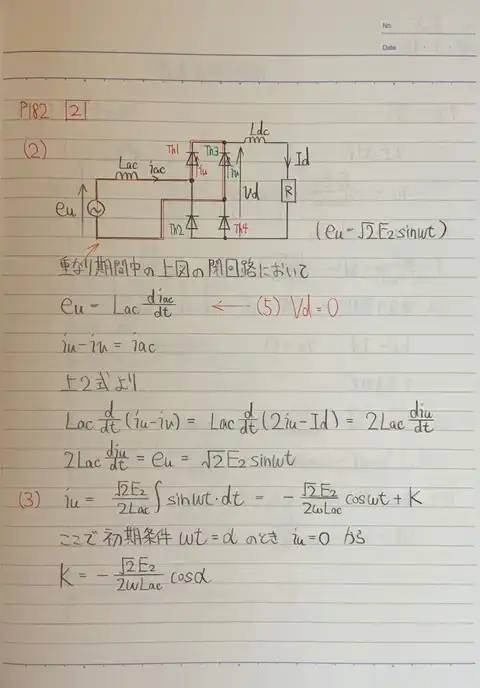 No.
Date
P182 [2]
(2)
Ldc
Th1
Th3
Id
Lac
iac
iu
iv
Vd
R
eu
Th2
Th4
(eu=√2E2sinωt)
重なり期間中の上図の閉回路において
eu = Lac diac/dt ← (5) Vd=0
iu-iv = iac
上2式より
Lac d/dt (iu-iv) = Lac d/dt (2iu-Id) = 2Lac diu/dt
2Lac diu/dt = eu = √2E2sinωt
(3) iu = √2E2/2Lac ∫sinωt・dt = - √2E2/2ωLac cosωt + K
ここで初期条件 ωt=α のとき iu=0 から
K = - √2E2/2ωLac cosα